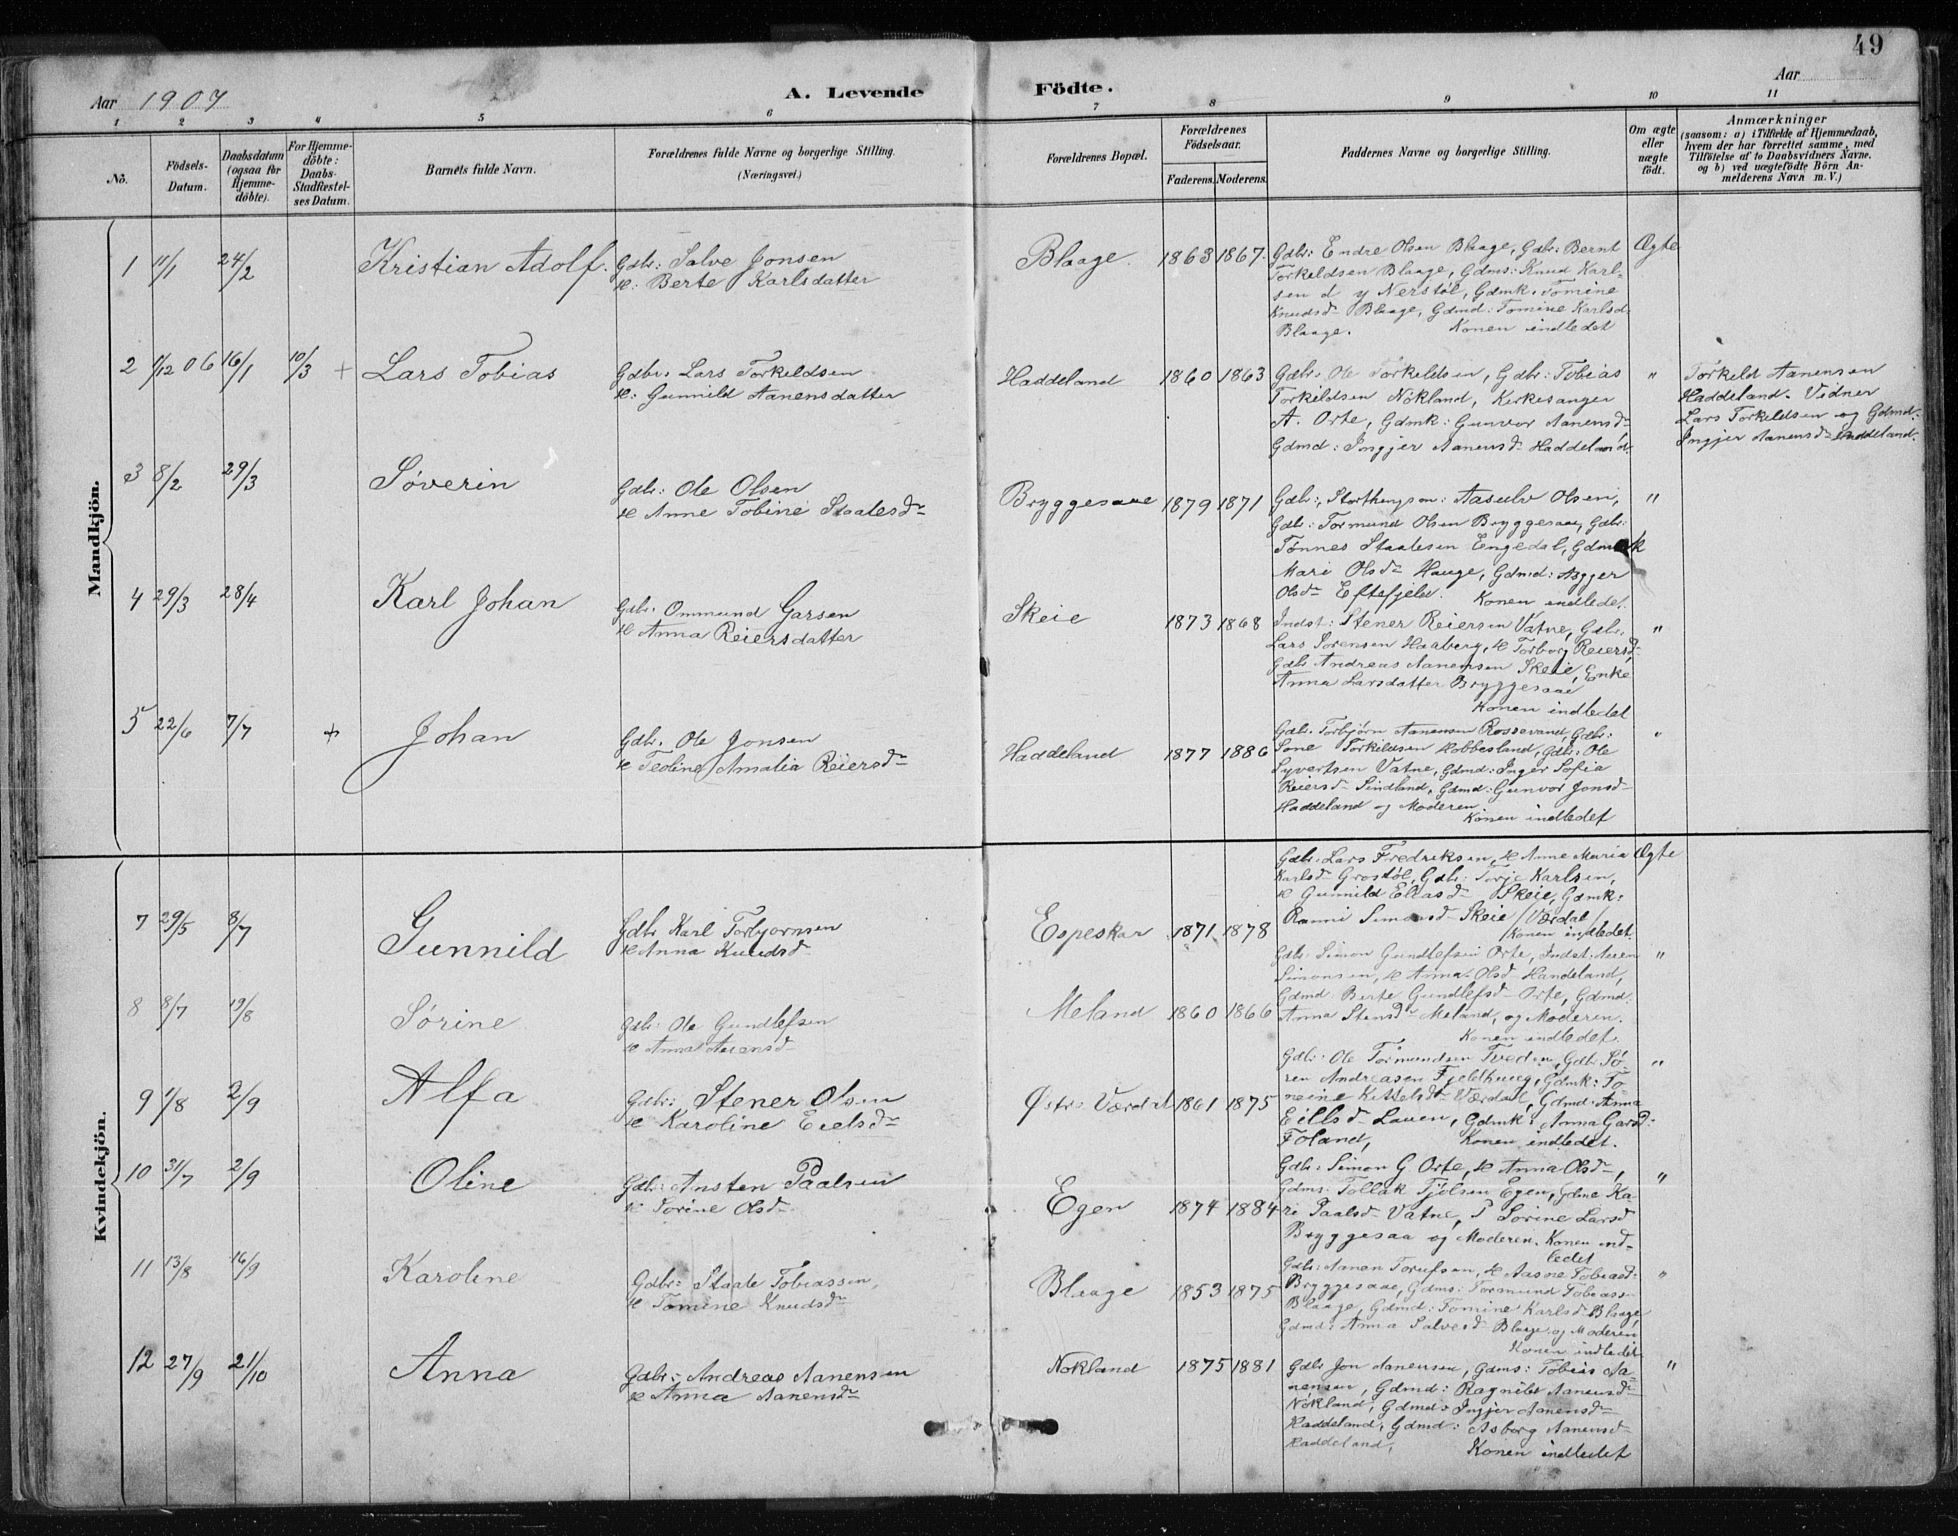 49
Aar 1907
A. Levende Födte.
Aar
1 2 3 4 5 6 7 8 9 10 11
No.
Födsels-Datum.
Daabsdatum (ogsaa for Hjemmedöbte).
For Hjemmedöbte: Daabs-Stadfæstelses Datum.
Barnets fulde Navn.
Forældrenes fulde Navne og borgerlige Stilling.
(Næringsvei.)
Forældrenes Bopæl.
Forældrenes Födselsaar.
Faderens. Moderens.
Faddernes Navne og borgerlige Stilling.
Om ægte eller uægte födt.
Anmærkninger
(saasom: a) i Tilfælde af Hjemmedaab,
hvem der har forrettet samme, med
Tilföielse af to Daabsvidners Navne.
og b) ved uægtefödte Börn An-
melderens Navn m. V.)
Mandkjön.
1 11/1 24/2 Kristian Adolf. Gdbr: Salve Jonsen
H: Berte Karlsdatter
Blaage. 1863 1867.
Gdbr: Endre Olsen Blaage, Gdbr: Bernt
Torkeldsen Blaage, Gdms: Knud Karl-
sen d y Nerstøl, Gdmk. Tomine
Knudsd Blaage, Gdmd: Tomine Karlsd
Blaage. Konen indledet
Ægte
2 1/12 06 16/1 10/3 + Lars Tobias
Gdbr. Lars Torkeldsen
H: Gunnild Aanensdatter
Haddeland 1860 1863
Gdbr. Ole Torkeldsen, Gdbr: Tobias
Torkildsen Nökland, Kirkesanger
A. Orte, Gdmk: Gunvor Aanensd
Gdmd: Ingjer Aanensd Haddeland
"
Torkeld Aanensen
Haddeland. Vidner
Lars Torkeldsen og Gdmd.
Ingjer Aanensd Haddeland.
3 8/2 29/3 Søverin
Gdbr: Ole Olsen
H Anne Tobine Staalesdr
Bryggesaae 1879 1871
Gdbr:, Storthingsm: Aasulv Olsen,
Gdbr: Tormund Olsen Bryggesaae, Gdbr:
Tønnes Staalesen Eengedal, Gdmk
Mari Olsd Hauge, Gdmd: Asgger
Olsd Eftefjeld. Konen indledet.
"
4 29/3 28/4 Karl Johan
Gdbr. Ommund Garsen
H Anna Reiersdatter
Skeie 1873 1868
Indst: Stener Reiersen Vatne, Gdbr.
Lars Sorensen Haaberg, H Torborg Reiersd
Gdbr Andreas Aanensen Skeie, Enke
Anna Larsdatter Bryggesaae
Konen indledet
"
5 22/6 7/7 + Johan
Gdbr. Ole Jonsen
H Teoline Amalia Reiersdr
Haddeland 1877 1886
Gdbr. Torbjørn Aanensen Rossevand, Gdbr:
Sone Torkildsen Hobbesland, Gdbr: Ole
Syvertsen Vatne, Gdmd: Inger Sofia
Reiersd Sindland, Gdmd: Gunvor Jonsd
Haddeland og Moderen.
Konen indledet
"
Kvindekjön.
7 29/5 8/7 Gunnild
Gdbr Karl Torbjornsen
H Anna Knudsd
Espeskar 1871 1878
Gdbr. Lars Fredriksen, H Anne Maria
Karlsd Grostøl, Gdbr: Torje Karlsen,
H Gunnild Eliasd Skeie, Gdmk:
Ranni Simonsd Skeie / Værdal /
Konen indledet.
Ægte
8 8/7 19/8 Sørine
Gdbr: Ole Gundlefsen
H Anna Aanensd
Meland 1860 1866
Gdbr. Simon Gundlefsen Orte, Indst. Aanen
Simonsen, H Anna Olsd Handeland,
Gdmd Berte Gundlefsd Orte, Gdmd.
Anna Stensdr Meland, og Moderen.
Konen indledet.
"
9 1/8 2/9 Alfa
Gdbr: Stener Olsen
H Karoline Eielsdr
Østre Værdal 1861 1875
Gdbr: Ole Tormundsen Tveden, Gdbr. Sø-
ren Andreasen Fjeldhaug, Gdmk: To-
neine Kittelsd Værdal, Gdmd: Anna
Eillsd Lauen, Gdmk: Anna Garsd:
Foland, Konen indledet.
"
10 31/7 2/9 Oline
Gdbr: Ansten Paalsen
H Sorine Olsd
Egen 1874 1884
Gdbr: Simon G. Orte, H Anna Olsdr,
Gdms: Tollak Tjølsen Egen, Gdme Ka-
ri Paalsd Vatne, P Sorine Larsd
Bryggesaa og Moderen. Konen ind-
ledet
"
11 13/8 16/9 Karoline
Gdbr: Staale Tobiassen,
H Tomine Knudsdr
Blaage 1853 1875
Gdbr: Aanen Torufsen, H Aasne Tobiasd:
Bryggesaae, Gdms: Tormund Tobiass
Blaage, Gdmd: Tomine Karlsd Blaage,
Gdmd: Anna Salvesd Blaage og Moderen
Konen indledet
"
12 27/9 21/10 Anna
Gdbr: Andreas Aanensen
H Anna Aanensdr
Nökland 1875 1881
Gdbr Jon Aanensen, Gdms: Tobias Aa-
nensen, Gdmd: Ragnild Aanensd
Nökland, Gdmd: Ingjer Aanensd
Haddeland, Gdmd: Asborg Aanensd
Haddeland, Konen indledet
"